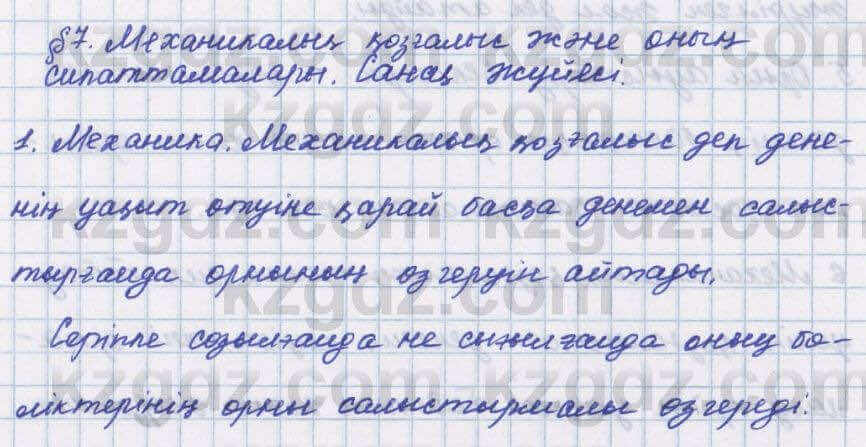 §7. Механикалық қозғалыс және оның
сипаттамалары. Санақ жүйесі.
1. Механика. Механикалық қозғалыс деп дене-
нің уақыт өтуіне қарай басқа денемен салыс-
тырғанда орнының өзгеруін айтады.
Серіппе созылғанда не сығылғанда оның бө-
ліктерінің орны салыстырмалы өзгереді.
kzgdz.com